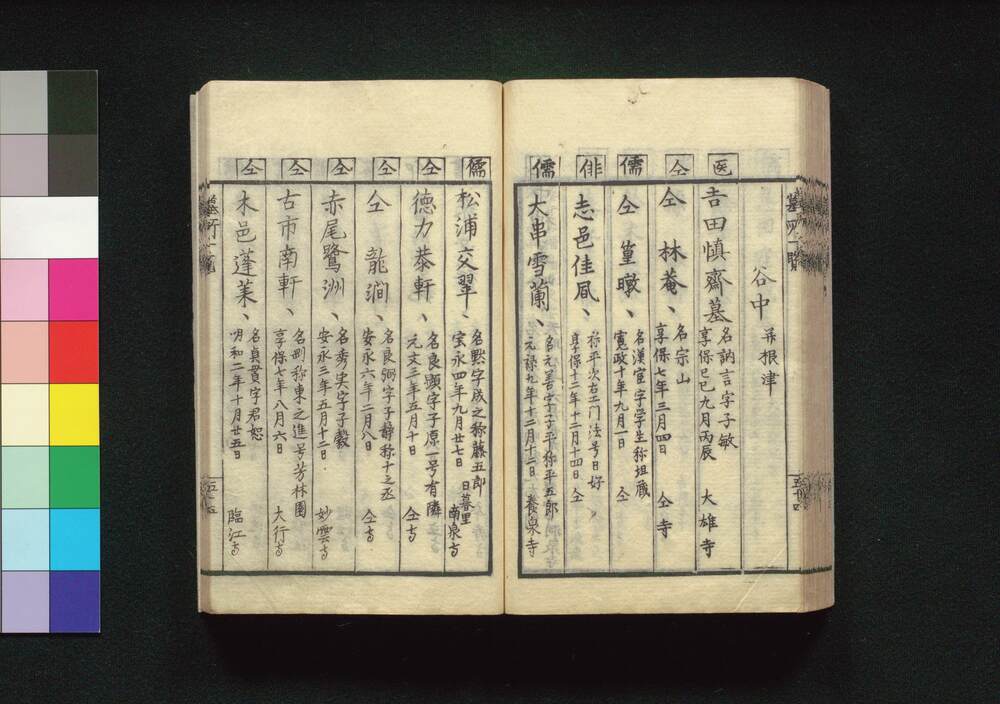 墓所一覽
谷中 并根津
医
吉田慎齋墓
名訥言字子敏
享保己巳九月丙辰
大雄寺
仝
仝 林菴、
名宗山
享保七年三月四日
仝寺
儒
仝 篁墩、
名漢宦字学生称坦藏
寛政十年九月一日
仝
俳
志邑佳凮、
称平次右エ门法号日好
享保十二年十二月十四日
仝
儒
大串雪蘭、
名元善字子平称平五郎
元禄九年十二月十二日
養泉寺
儒
松浦交翠、
名黙字成之称藤五郎
宝永四年九月廿七日
日暮里
南泉寺
仝
德力恭軒、
名良顕字子原一号有隣
元文三年五月十日
仝寺
仝
仝 龍澗、
名良弼字子静称十之丞
安永六年二月八日
仝寺
仝
赤尾鷺洲、
名秀実字子縠
安永三年五月十二日
妙雲寺
仝
古市南軒、
名剛称東之進号芳林園
享保七年八月六日
大行寺
仝
木邑蓬莱、
名貞貫字君恕
明和二年十月廿五日
臨江寺
墓所一覽